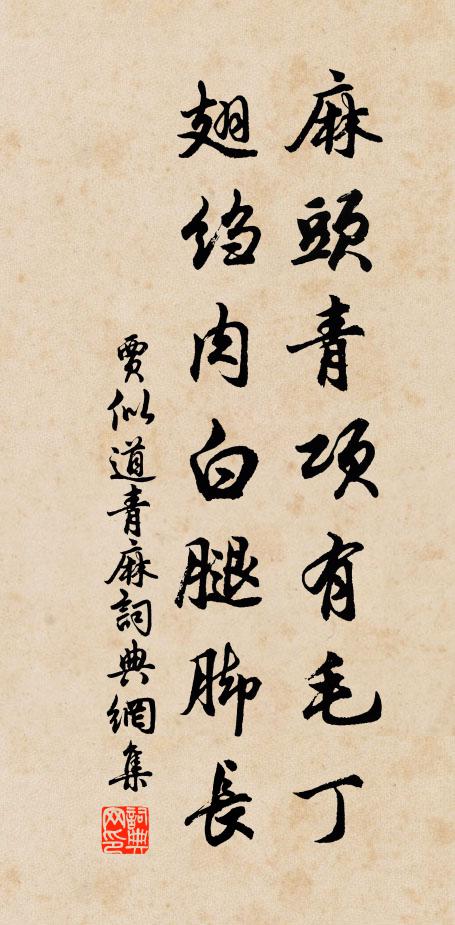 麻頭青項有毛丁
翅绉肉白腿脚長
賈似道青麻詞典網集
詞典网印